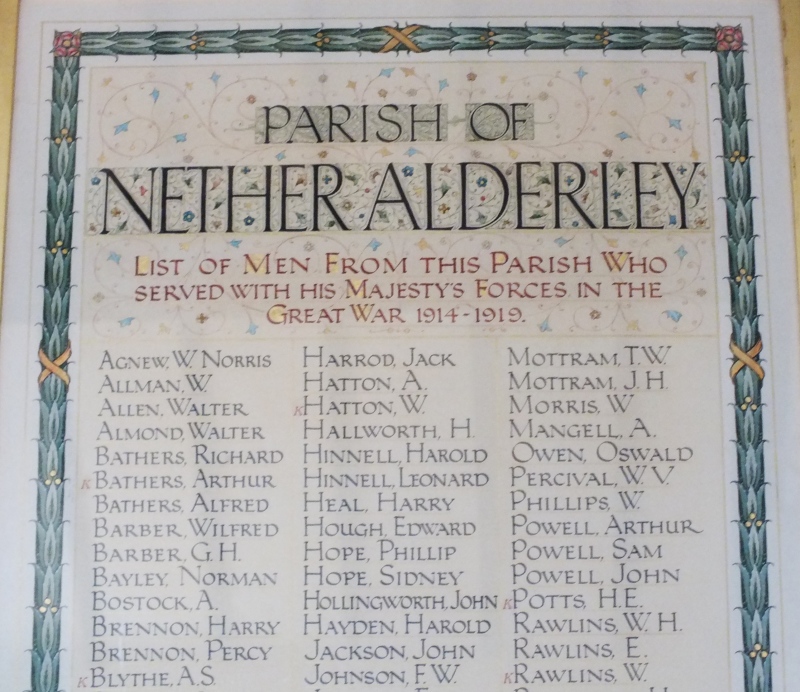 PARISH OF
NETHER ALDERLEY
LIST OF MEN FROM THIS PARISH WHO
SERVED WITH HIS MAJESTY'S FORCES IN THE
GREAT WAR 1914-1919.
AGNEW, W. NORRIS
ALLMAN, W
ALLEN, WALTER
ALMOND, WALTER
BATHERS, RICHARD
K BATHERS, ARTHUR
BATHERS, ALFRED
BARBER, WILFRED
BARBER, G. H.
BAYLEY, NORMAN
BOSTOCK, A.
BRENNON, HARRY
BRENNON, PERCY
K BLYTHE, A.S.
HARROD, JACK
HATTON, A.
K HATTON, W.
HALLWORTH, H.
HINNELL, HAROLD
HINNELL, LEONARD
HEAL, HARRY
HOUGH, EDWARD
HOPE, PHILLIP
HOPE, SIDNEY
HOLLINGWORTH, JOHN
HAYDEN, HAROLD
JACKSON, JOHN
JOHNSON, F. W.
MOTTRAM, T.W.
MOTTRAM, J. H.
MORRIS, W
MANGELL, A.
OWEN, OSWALD
PERCIVAL, W. V.
PHILLIPS, W.
POWELL, ARTHUR
POWELL, SAM
POWELL, JOHN
K POTTS, H.E.
RAWLINS, W. H.
RAWLINS, E.
K RAWLINS, W.